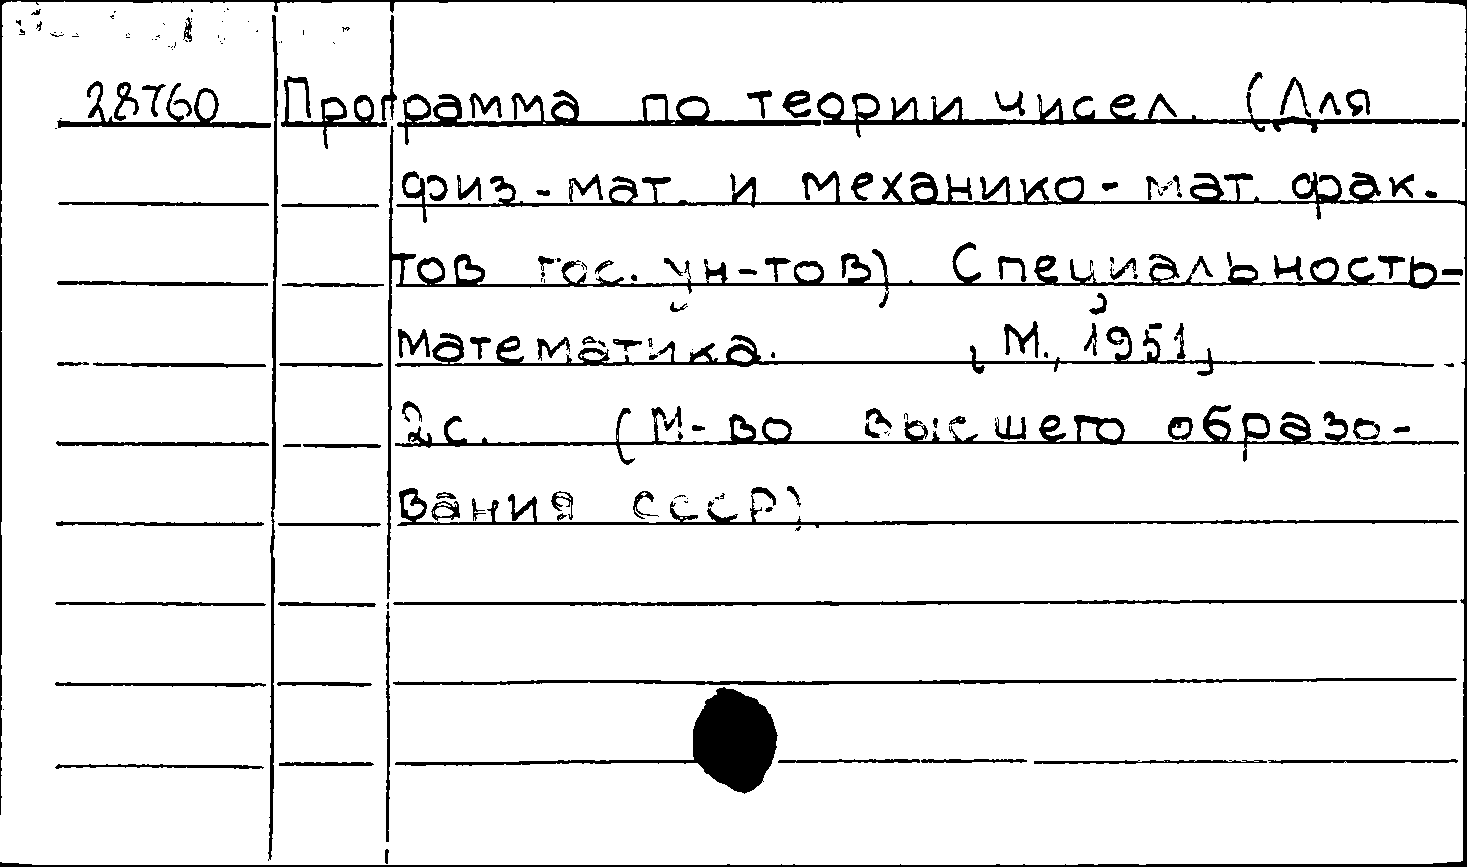 28760 Программа по теории чисел. (Для
физ.-мат. и механико-мат. фак-
тов гос. ун-тов). Специальность-
математика. , М., 1951,
2 с. (М-во высшего образо-
вания СССР).